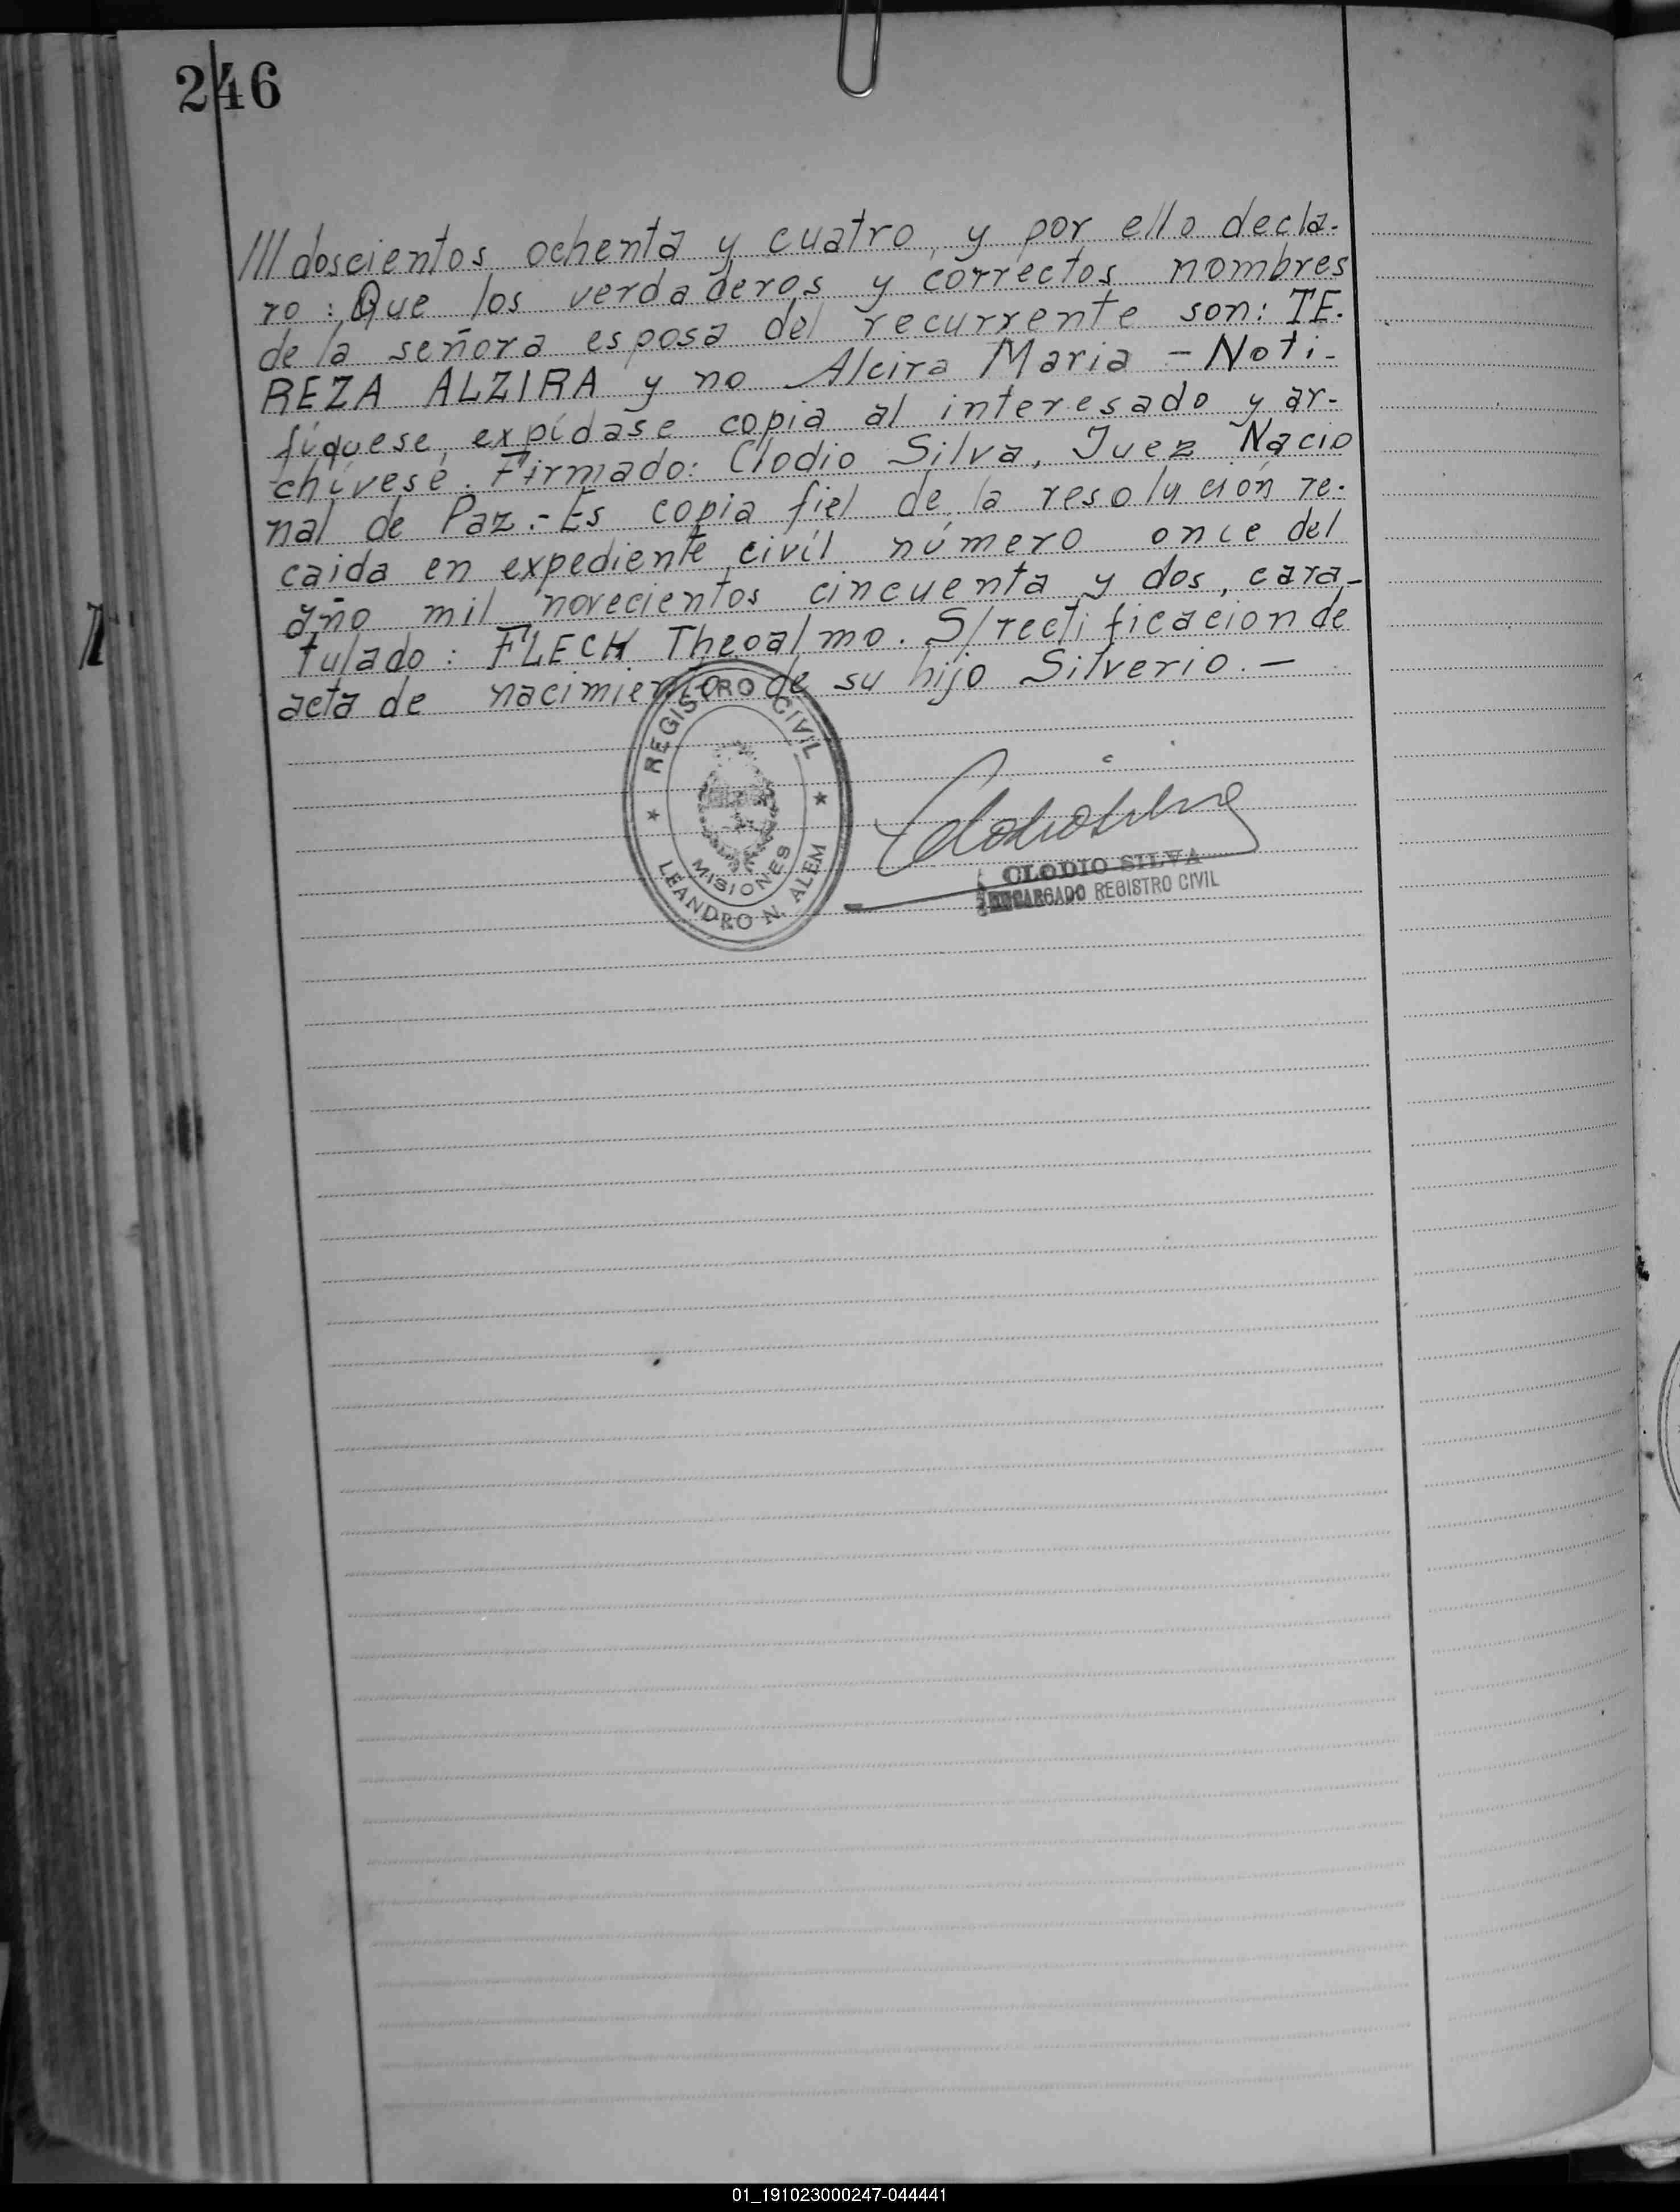 246
/// doscientos ochenta y cuatro, y por ello decla-
ro: Que los verdaderos y correctos nombres
de la señora esposa del recurrente son: TE-
REZA ALZIRA y no Alcira Maria - Noti-
fíquese, expídase copia al interesado y ar-
chívese. Firmado: Clodio Silva, Juez Nacio
nal de Paz.- Es copia fiel de la resolución re-
caida en expediente civil número once del
año mil novecientos cincuenta y dos, cara-
tulado: FLECH Theoalmo. S/rectificacion de
acta de nacimiento de su hijo Silverio. -
REGISTRO CIVIL
MISIONES
LEANDRO N. ALEM
CLODIO SILVA
ENCARGADO REGISTRO CIVIL
01_191023000247-044441